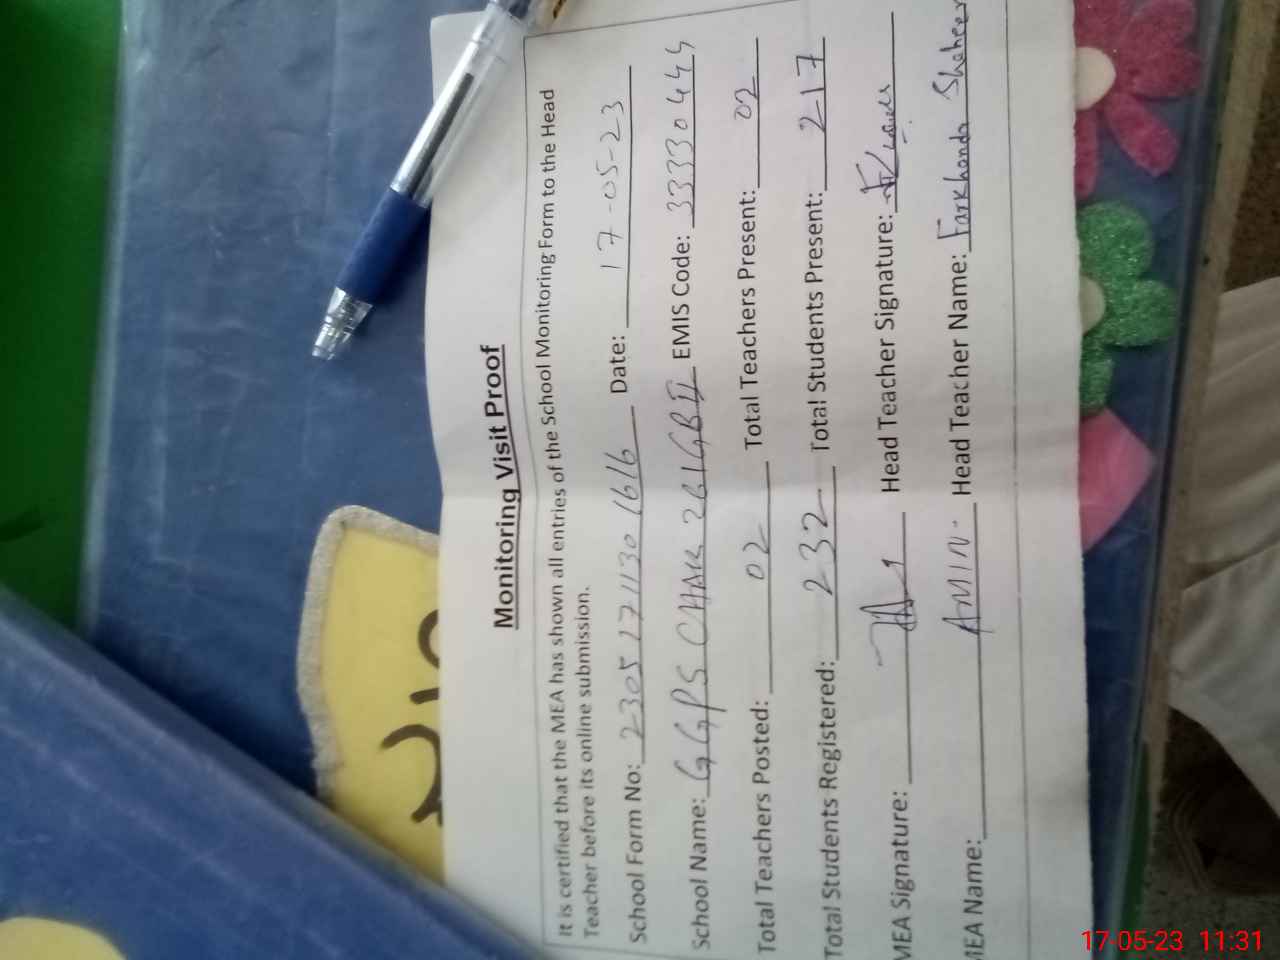 Monitoring Visit Proof
It is certified that the MEA has shown all entries of the School Monitoring Form to the Head
Teacher before its online submission.
School Form No: 2305171130 1616 Date: 17-05-23
School Name: GGPS CHAK 261GB II EMIS Code: 33330445
Total Teachers Posted: 02 Total Teachers Present: 02
Total Students Registered: 232 Total Students Present: 217
MEA Signature: Head Teacher Signature:
MEA Name: AMIN. Head Teacher Name: Farkhanda Shaheen
17-05-23 11:31